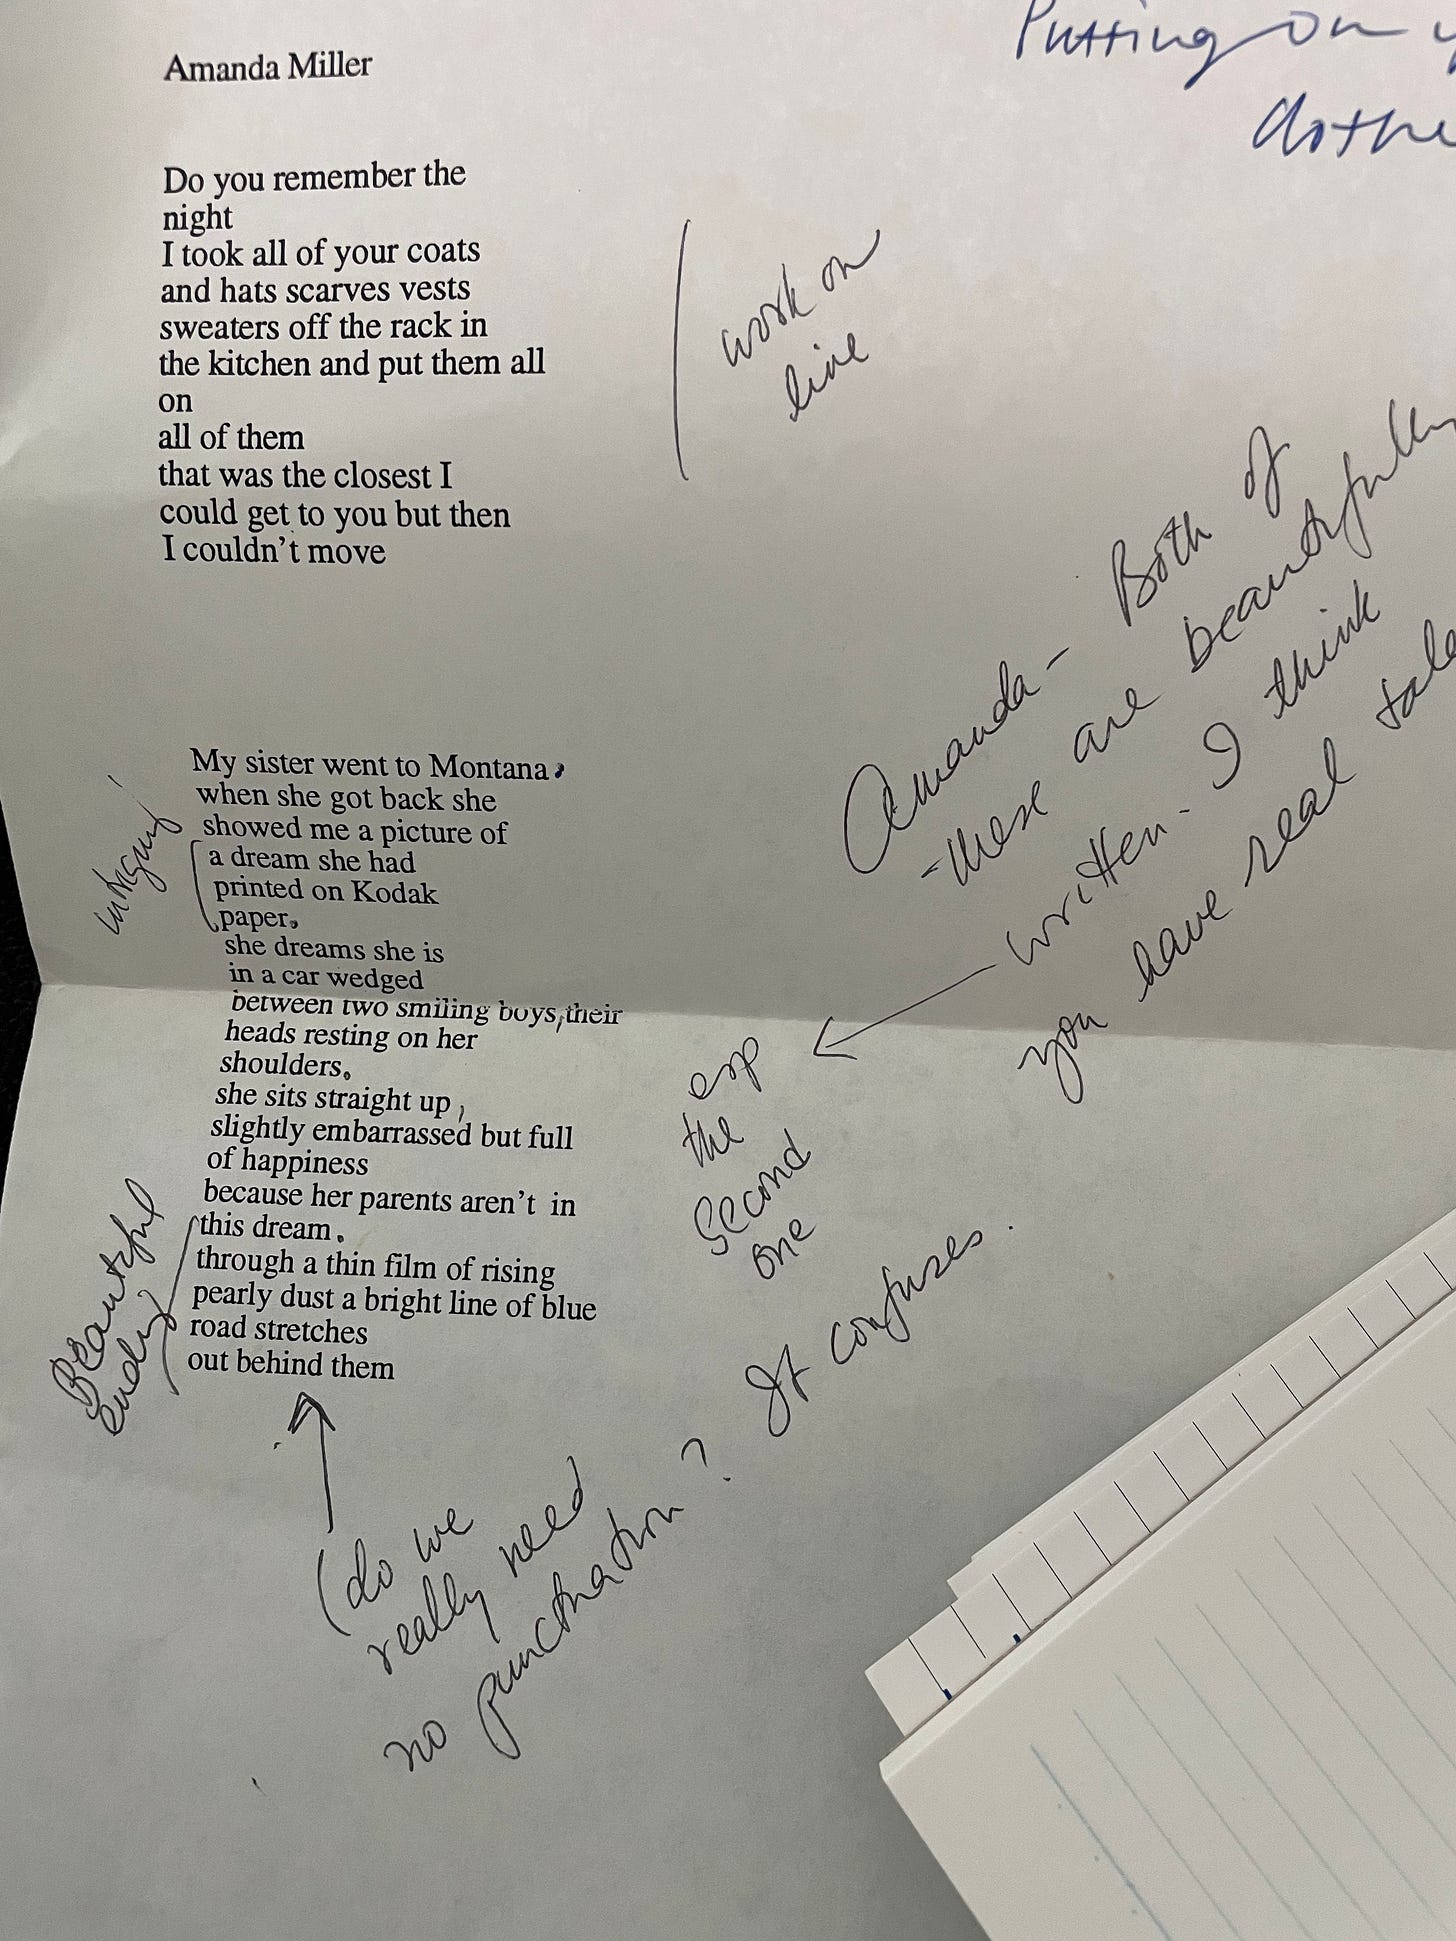 Amanda Miller
Putting on
Do you remember the
night
I took all of your coats
and hats scarves vests
sweaters off the rack in
the kitchen and put them all
on
all of them
that was the closest I
could get to you but then
I couldn't move
work on
line
Amanda - Both of
these are beautifully
written - I think
you have real
esp
the
second
one
My sister went to Montana,
when she got back she
showed me a picture of
a dream she had
printed on Kodak
paper.
she dreams she is
in a car wedged
between two smiling boys, their
heads resting on her
shoulders.
she sits straight up,
slightly embarrassed but full
of happiness
because her parents aren't in
this dream.
through a thin film of rising
pearly dust a bright line of blue
road stretches
out behind them
Beautiful
ending
(do we
really need
no punctuation? It confuses.